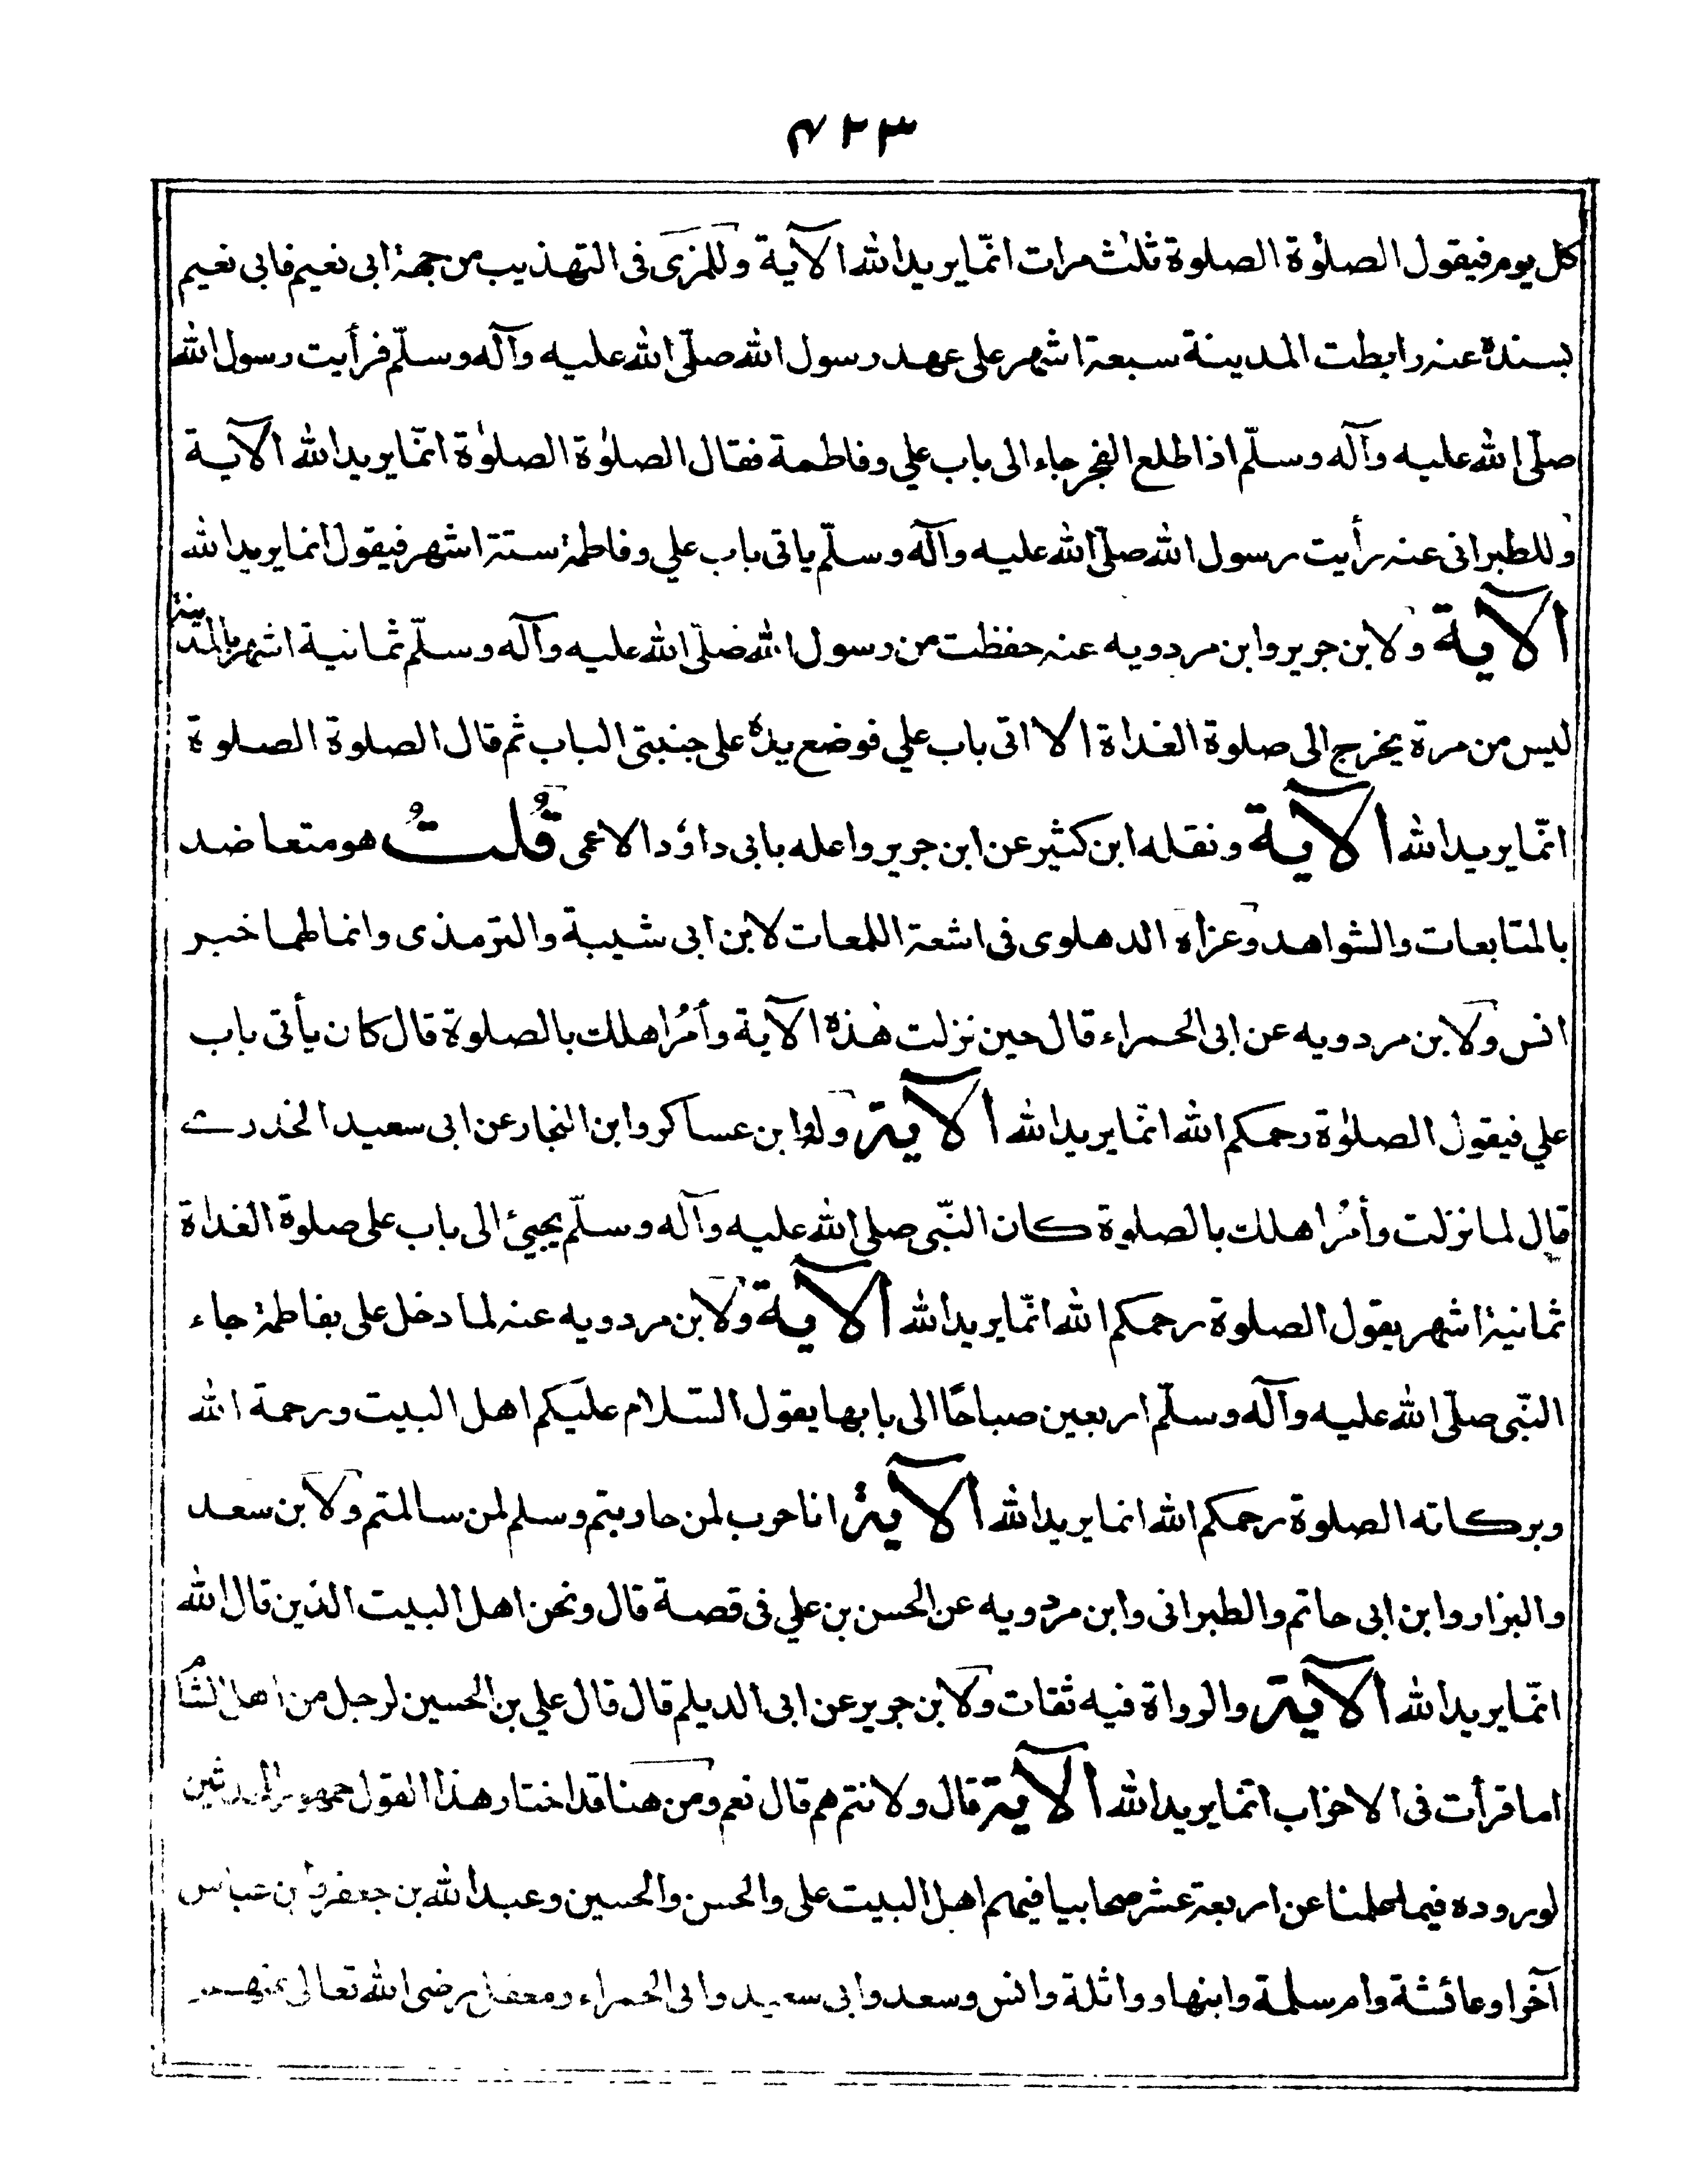 ۴۲۳
كل يوم فيقول الصلوٰة الصلوة ثلٰث مرات انّما يريد الله الآية وللمزى فى التهذيب من جهة ابى نعيم فابى نعيم
بسنده عنه رابطت المدينة سبعة اشهر على عهد رسول الله صلّى الله عليه وآله وسلّم فرأيت رسول الله
صلّى الله عليه وآله وسلّم اذا طلع الفجر جاء الى باب علي وفاطمة فقال الصلوٰة الصلوٰة انّما يريد الله الآية
وللطبرانى عنه رأيت رسول الله صلّى الله عليه وآله وسلّم ياتى باب علي وفاطمة ستة اشهر فيقول انما يريد الله
الآية ولابن جرير وابن مردويه عنه حفظت من رسول الله صلّى الله عليه وآله وسلّم ثمانية اشهر بالمدينة
ليس من مرة يخرج الى صلوة الغداة الا اتى باب علي فوضع يده على جنبتى الباب ثم قال الصلوة الصلوة
انّما يريد الله الآية ونقله ابن كثير عن ابن جرير واعله بابى داؤد الاعمى قُلتُ هو متعاضد
بالمتابعات والشواهد وعزاه الدهلوى فى اشعة اللمعات لابن ابى شيبة والترمذى وانما لهما خبر
انس ولابن مردويه عن ابى الحمراء قال حين نزلت هٰذه الآية وأمُر اهلك بالصلوة قال كان يأتى باب
علي فيقول الصلوٰة رحمكم الله انّما يريد الله الآية وله وابن عساكر وابن النجار عن ابى سعيد الخدرے
قال لما نزلت وأمُر اهلك بالصلوة كان النّبى صلى الله عليه وآله وسلّم يجيئ الى باب على صلوة الغداة
ثمانية اشهر يقول الصلوة رحمكم الله انّما يريد الله الآية ولابن مردويه عنه لما دخل على بفاطمة جاء
النّبى صلّى الله عليه وآله وسلّم اربعين صباحًا الى بابها يقول السّلام عليكم اهل البيت ورحمة الله
وبركاته الصلوة رحمكم الله انما يريد الله الآية انا حرب لمن حاربتم وسلم لمن سالمتم ولابن سعد
والبزار وابن ابى حاتم والطبرانى وابن مردويه عن الحسن بن علي فى قصة قال ونحن اهل البيت الذين قال الله
انّما يريد الله الآية والرواة فيه ثقات ولابن جرير عن ابى الديلم قال قال علي بن الحسين لرجل من اهل الشام
اما قرأت فى الاحزاب انّما يريد الله الآية قال ولانتم هم قال نعم ومن هنا قد اختار هذا القول جمهور المحدثين
لوروده فيما علمنا عن اربعة عشر صحابيا فيهم اهل البيت على والحسن والحسين وعبد الله بن جعفر وابن عباس
آخرا وعائشة وام سلمة وابنها وواثلة وانس وسعد وابى سعيد وابى الحمراء ومعقل رضى الله تعالى عنهم